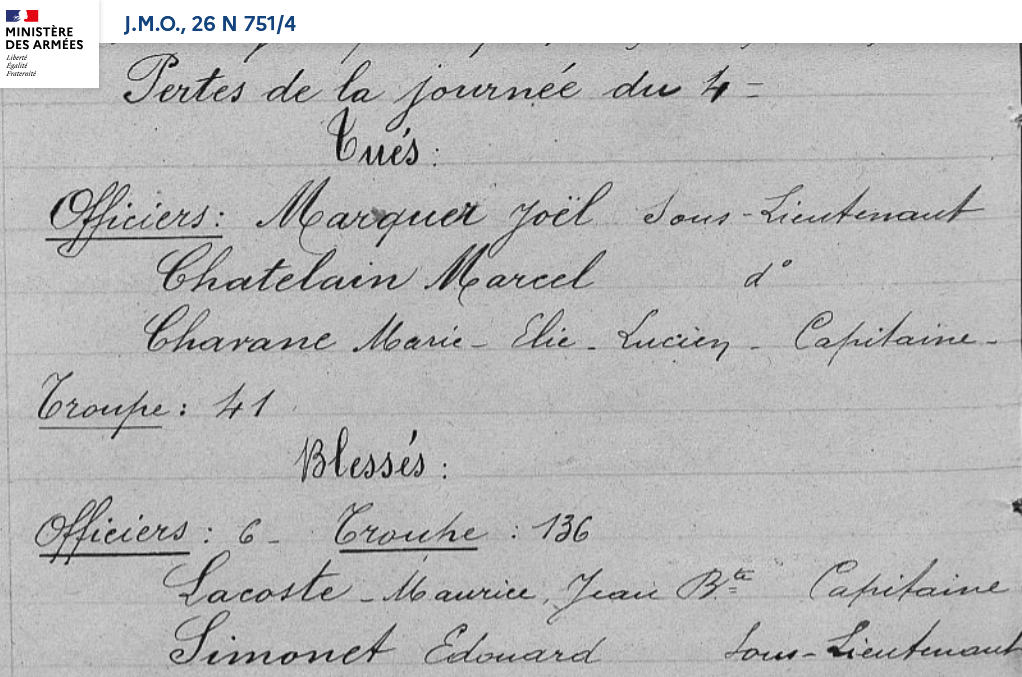 MINISTÈRE
DES ARMÉES
Liberté
Égalité
Fraternité
J.M.O., 26 N 751/4
Pertes de la journée du 4 =
Tués :
Officiers : Marquer Joël Sous-Lieutenant
Chatelain Marcel d°
Chavane Marie - Elie - Lucien - Capitaine -
Troupe : 41
Blessés :
Officiers : 6 - Troupe : 136
Lacoste - Maurice, Jean Bte Capitaine
Simonet Edouard Sous-Lieutenant